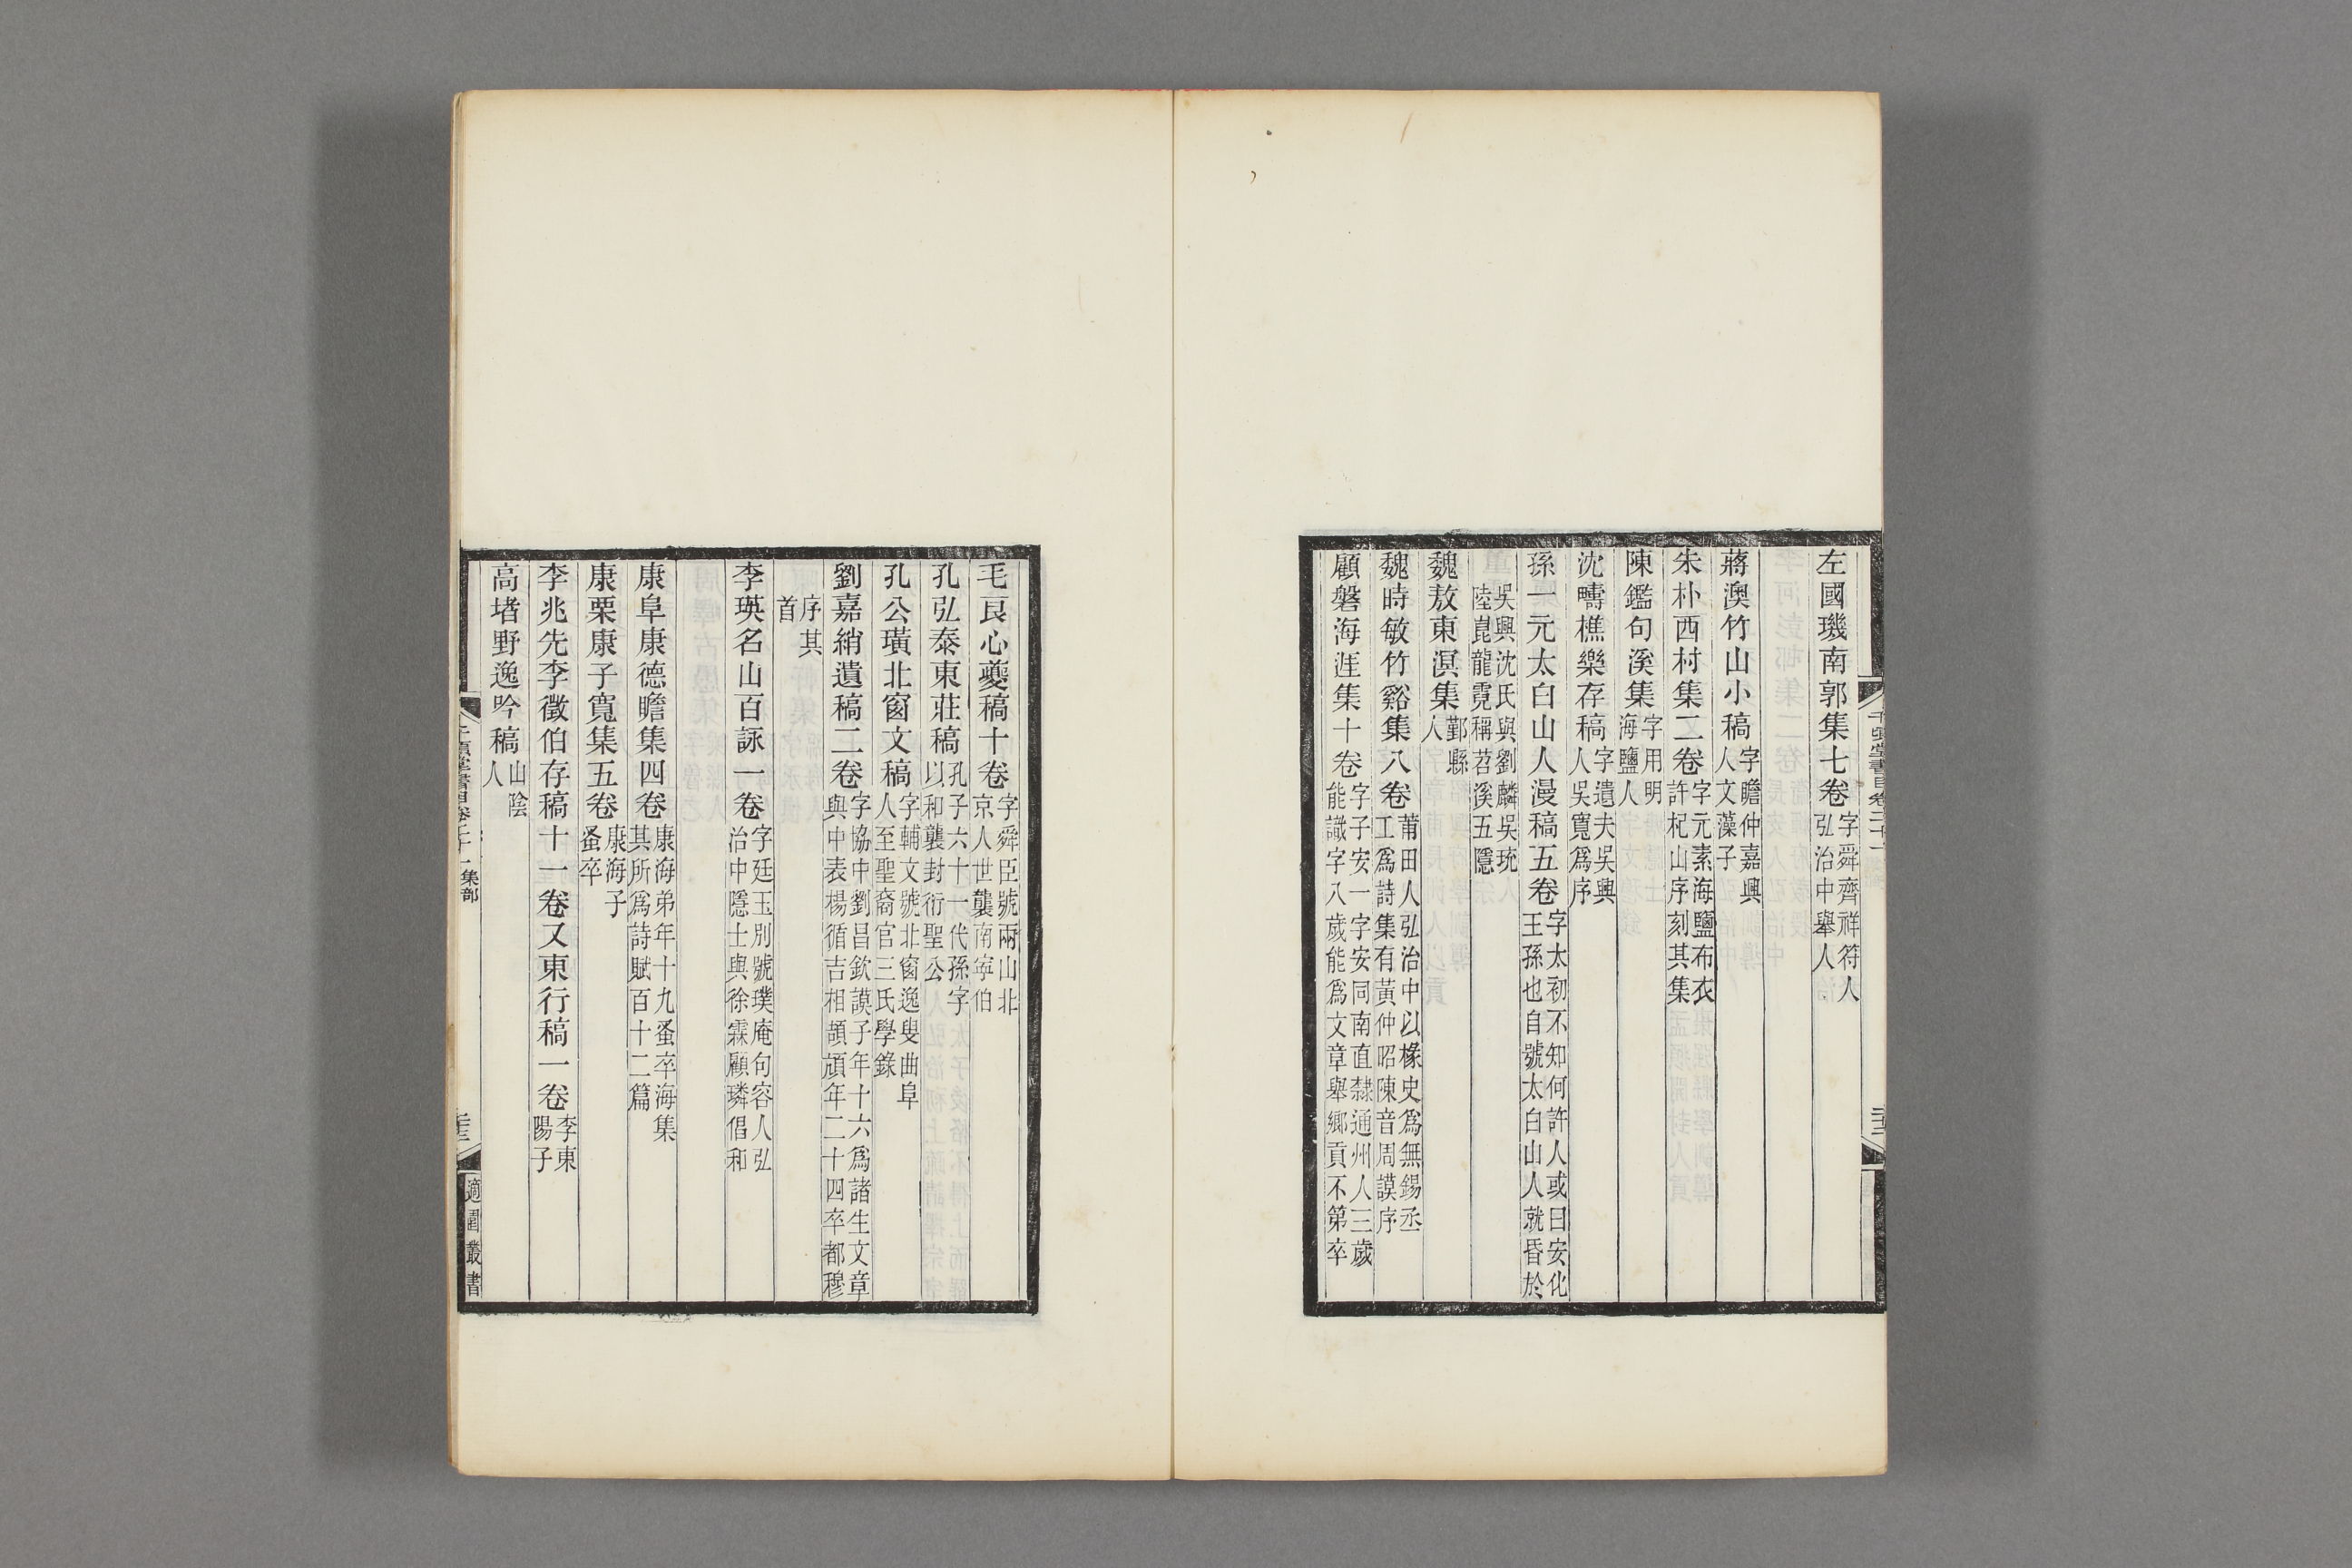 左國璣南郭集七卷字舜齊祥符人弘治中舉人
蔣澳竹山小稿字瞻仲嘉興人文藻子
朱朴西村集二卷字元素海鹽布衣許杞山序刻其集
陳鑑句溪集字用明海鹽人
沈㽵樵樂存稿字遺夫吳興人吳寬爲序
孫一元太白山人漫稿五卷字太初不知何許人或曰安化王孫也自號太白山人就昏於
吳興沈氏與劉麟吳珫陸崑龍霓稱苕溪五隱
魏敖東溟集鄞縣人
魏時敏竹谿集八卷莆田人弘治中以椽史爲無錫丞工爲詩集有黃仲昭陳音周謨序
顧磐海涯集十卷字子安一字安同南直隸通州人三歲能識字八歲能爲文章舉鄉貢不第卒
毛良心夔稿十卷字舜臣號兩山北京人世襲南寧伯
孔弘泰東莊稿孔子六十一代孫字以和襲封衍聖公
孔公璜北窗文稿字輔文號北窗逸叟曲阜人至聖裔官三氏學錄
劉嘉䋺遺稿二卷字協中劉昌欽謨子年十六爲諸生文章與中表楊循吉相頡頏年二十四卒都穆
序其首
李瑛名山百詠一卷字廷玉別號璞庵句容人弘治中隱士與徐霖顧璘倡和
康阜康德瞻集四卷康海弟年十九蚤卒海集其所爲詩賦百十二篇
康栗康子寬集五卷康海子蚤卒
李兆先李徵伯存稿十一卷又東行稿一卷李東陽子
高堵野逸吟稿山陰人
集部
適園叢書